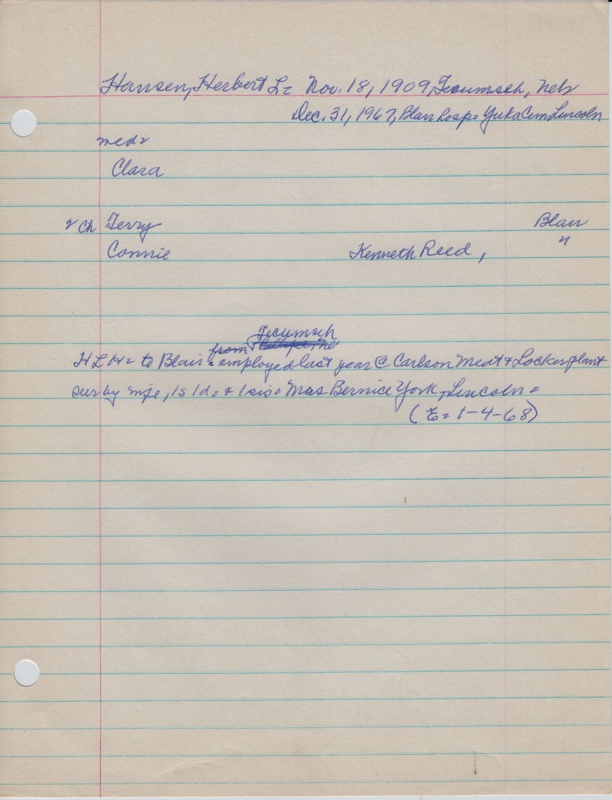 Hansen, Herbert L = Nov. 18, 1909, Tecumseh, Neb
Dec. 31, 1967, Blair hosp = Yuka Cem Lincoln
med =
Clara
2 Ch Terry Blair
Connie Kenneth Reed, "
Tecumseh
from
H L H = to Blair & employed last year @ Carlson Meat & Locker plant
sur by wife, 1s 1d, & 1 sis = Mrs Bernice York, Lincoln =
(E = 1-4-68)